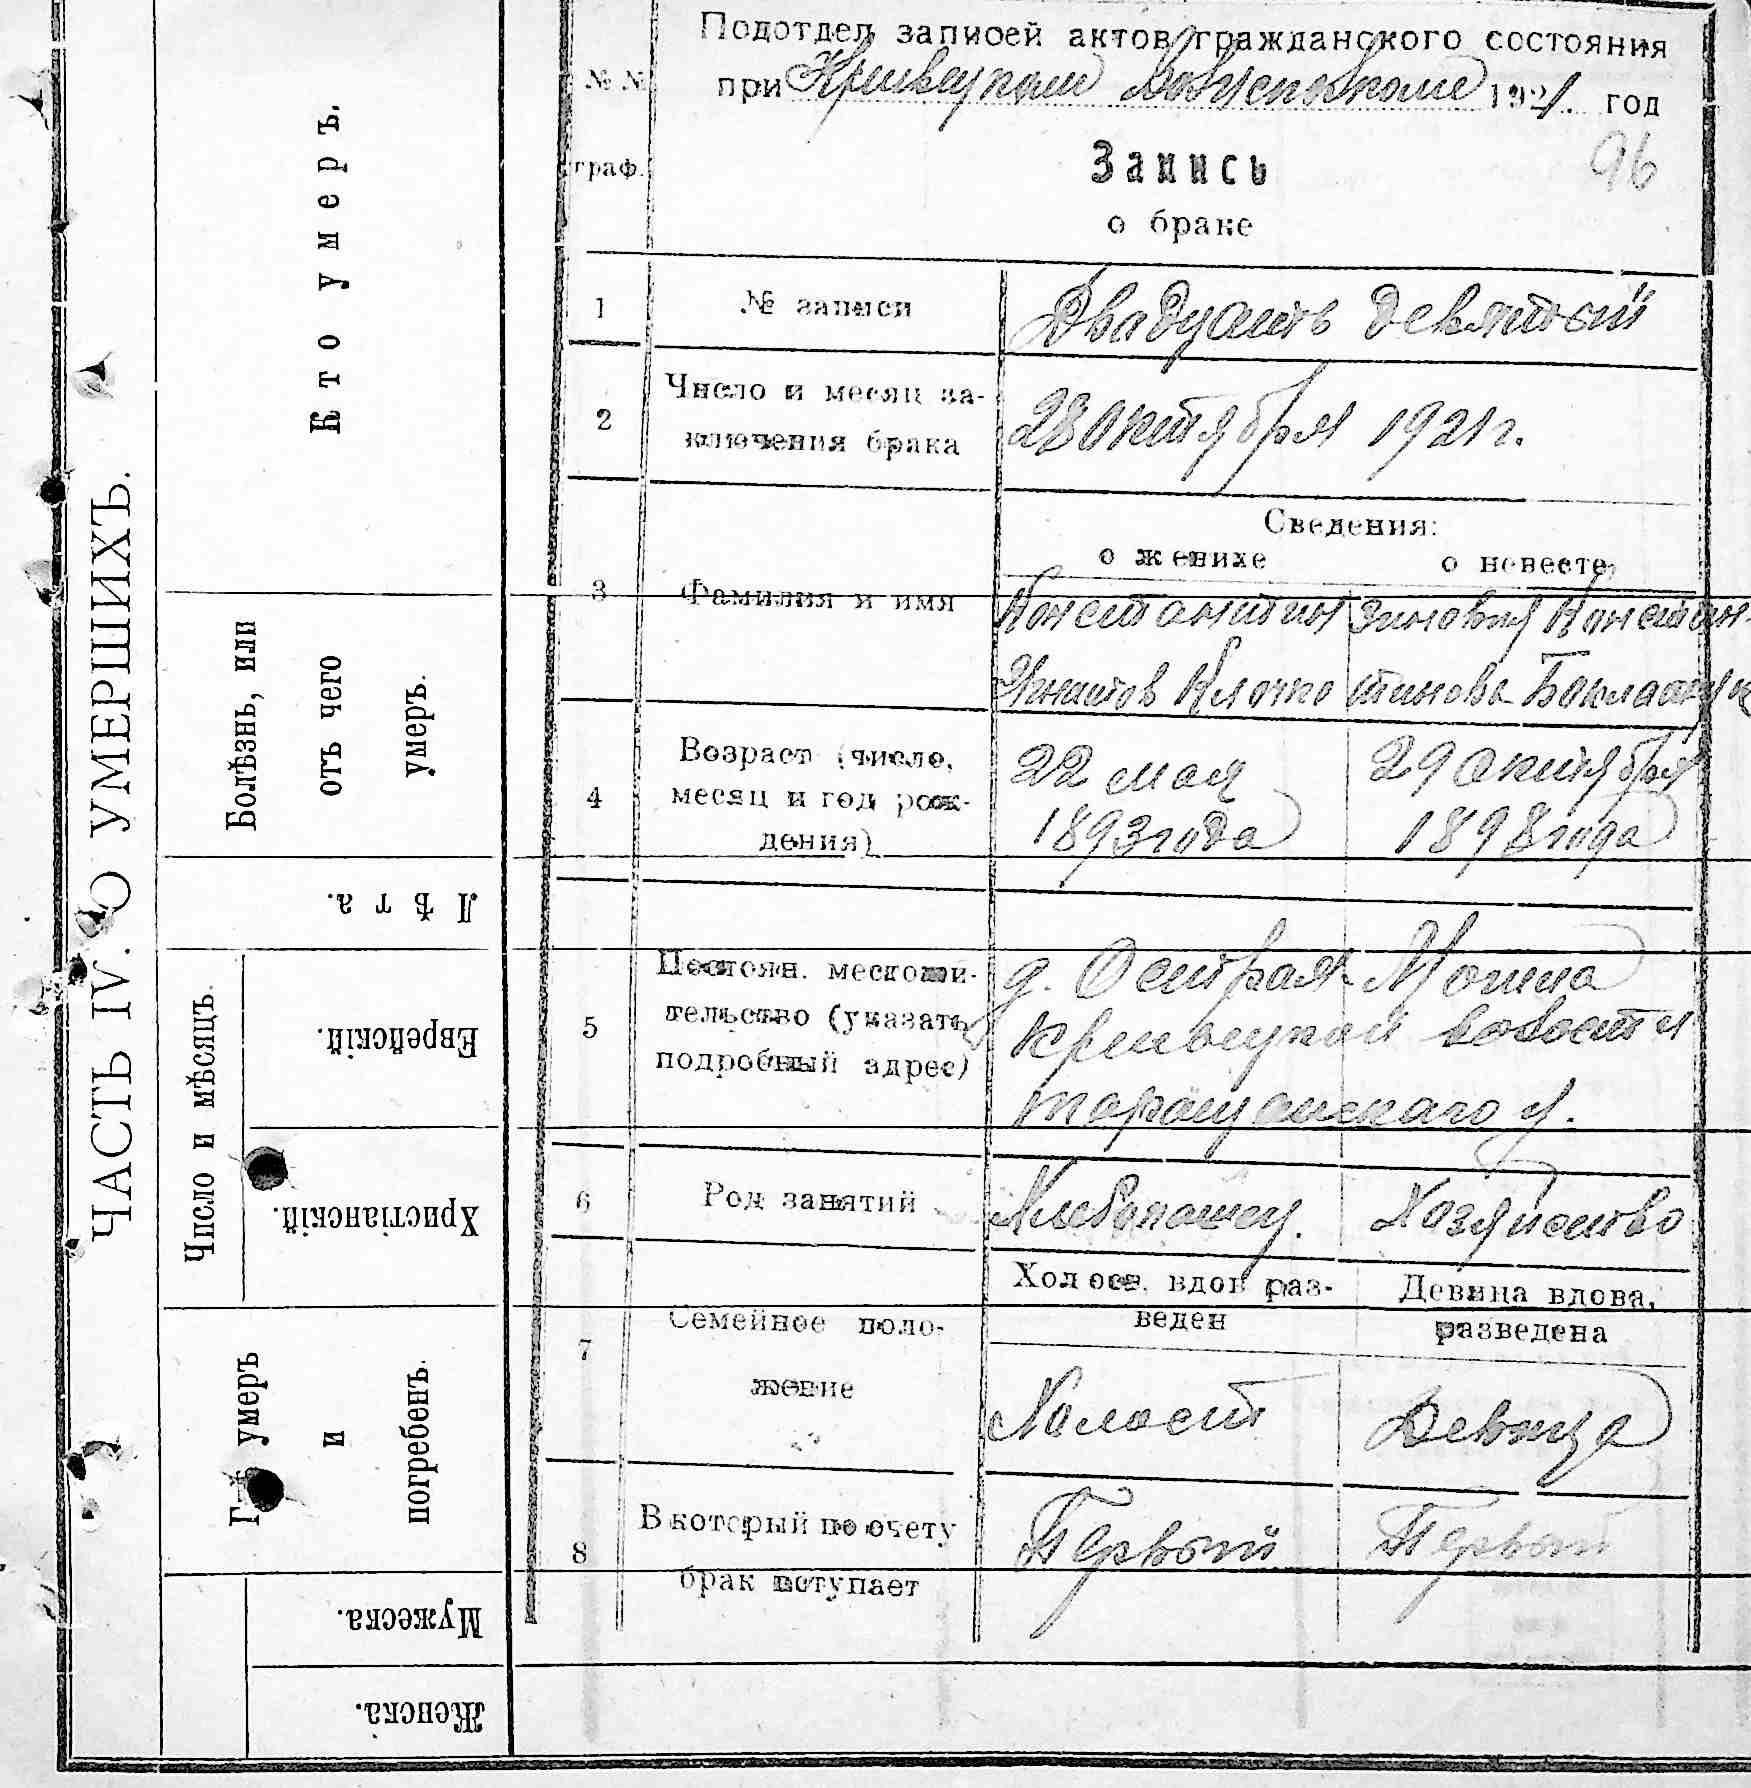 ЧАСТЬ IV. О УМЕРШИХЪ.
Кто умеръ.
Болѣзнь, или
отъ чего
умеръ.
Лѣта.
Число и мѣсяцъ.
Еврейскій.
Христіанскій.
Гдѣ умеръ
и
погребенъ.
Мужеска.
Женска.
Подотдел записей актов гражданского состояния
№ №
при Кривецком Волисполкоме 1921. год
граф.
Запись
96
о браке
1
№ записи
Двадцать девятый
2
Число и месяц за-
ключения брака
28 октября 1921 г.
Сведения:
о женихе
о невесте
3
Фамилия и имя
Константин
Зиновия Констан-
Клочко
тинова
4
Возраст (число,
месяц и год рож-
дения)
22 мая
1893 года
29 октября
1898 года
5
Постоян. местожи-
тельство (указать
подробный адрес)
д. Острая Могила
Кривецкой волости
таращанскаго у.
6
Род занятий
Хлебопашец.
Хозяйство
7
Семейное поло-
жение
Холост, вдов раз-
веден
Девица вдова,
разведена
Холост
Девица
8
В который по счету
брак вступает
Первый
Первый